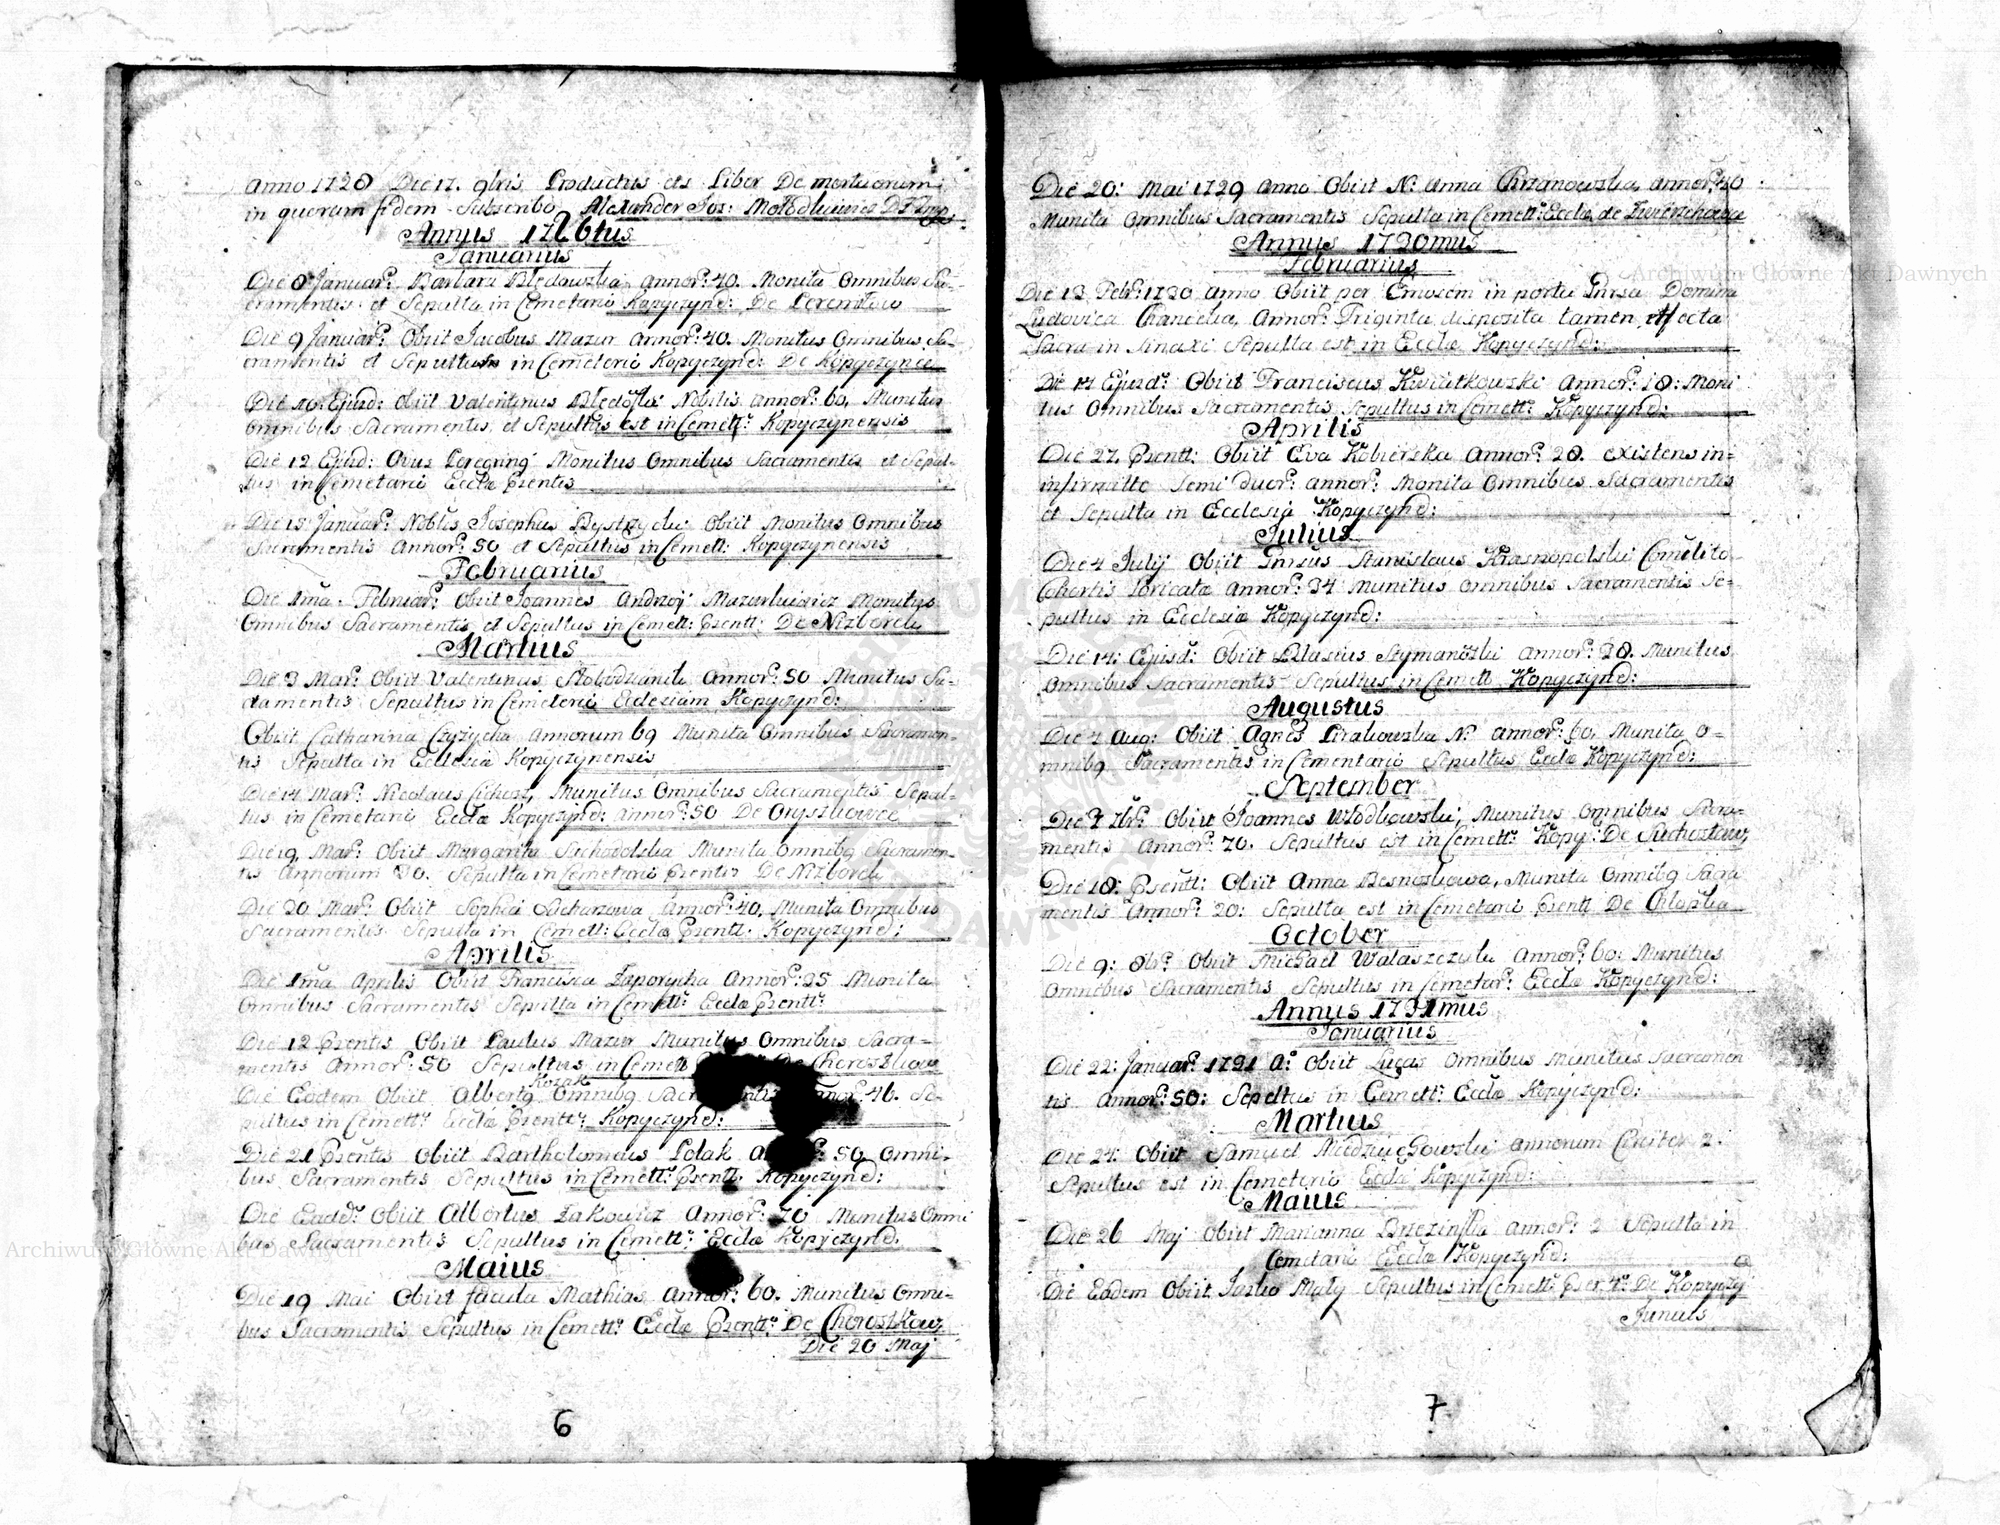 Anno 1728 Die 17. 9bris Productus ets Liber De mortuorum
in quorum fidem Subscribo Alexander Jos:
Annus
Januarius
Die 8 Januar: Barbara Błędowska annor: 40. Monita Omnibus Sa-
cramentis et Sepulta in Cemetario Kopyczynd: De
Die 9 Januar: Obiit Jacobus Mazur Annor: 40. Monitus Omnibus Sa-
cramentis et Sepultus in Cemeterio Kopyczynd: De Kopyczynce
Die 10: Ejusd: obiit Valentinus Nobilis annor: 60. Munitus
Omnibus Sacramentis et Sepultus est in Cemett: Kopyczynensis
Die 12 Ejusd: Monitus Omnibus Sacramentis et Sepul-
tus in Cemetario Eccla Prentis
Die 15 Januar: Noblis Josephus Bystrzycki Obiit Monitus Omnibus
Sacramentis Annor: 50 et Sepultus in Cemett: Kopyczynensis
Februarius
Die 1ma Februar: Obiit Joannes Andrzej Monitus
Omnibus Sacramentis et Sepultus in Cemett: Prentt: De Nizborek
Martius
Die 3 Mar: Obiit Valentinus Annor: 50 Munitus Sa-
damentis Sepultus in Cemeterio Ecclesiam Kopyczynd:
Obiit Catharina Czyzycka Annorum 69 Munita Omnibus Sacramen-
tis Sepulta in Ecclesia Kopyczynensis
Die 14 Mar: Nicolaus Munitus Omnibus Sacramentis Sepul-
tus in Cemetario Eccla Kopyczynd: Annor: 50 De Oryszkowce
Die 19. Mar: Obiit Margarita Munita Omnibq Sacramen-
tis Annorum 30. Sepulta in Cemeterio Prentis De Nizborek
Die 20 Mar: Obiit Sophia Annor: 40. Munita Omnibus
Sacramentis Sepulta in Cemett: Eccla Prentt: Kopyczynd:
Aprilis
Die 1ma Aprilis Obiit Francisca Annor: 25 Munita
Omnibus Sacramentis Sepulta in Cemett: Eccla Prentt:
Die 12 Prentis Obiit Paulus Mazur Munitus Omnibus Sacra-
mentis Annor: 50 Sepultus in Cemett De
Kozak
Die Eodem Obiit Albertq Omnibq Annor: 46. Se-
pultus in Cemett: Eccla Prentt: Kopyczynd:
Die 21 Prentis Obiit Bartholomaus Polak 50 Omni-
bus Sacramentis Sepultus in Cemett: Prentt: Kopyczynd:
Die Eadd: Obiit Albertus Annor: 70 Munitus Omni
bus Sacramentis Sepultus in Cemett: Eccla Kopyczynd:
Maius
Die 19 Mai Obiit facula Mathias Annor: 60. Munitus Omni-
bus Sacramentis Sepultus in Cemett: Eccla Prentt: De Chorostkow
Die 20 Maj
6
Die 20: Mai 1729 Anno Obiit N: Anna Chrzanowska, annor: 40
Munita Omnibus Sacramentis Sepulta in Cemett: Eccla de
Annus 1730mus
Februarius
Die 13 Febr: 1730 Anno Obiit per in partu Domina
Ludovica Annor: Triginta disposita tamen
Sacra in Sinaxi Sepulta est in Eccla Kopyczynd:
Die 14 Ejusd: Obiit Franciscus Kwiatkowski Annor: 18: Moni
tus Omnibus Sacramentis Sepultus in Cemett: Kopyczynd:
Aprilis
Die 27. Prentt: Obiit Eva Kobierska Annor: 28. existens in-
infirmitte Semi Ducr: annor: Monita Omnibus Sacramentis
et Sepulta in Ecclesia Kopyczynd:
Julius
Die 4 Julij Obiit Stanislaus Krasnopolski
Cohortis Loricata Annor: 34 Munitus Omnibus Sacramentis Se-
pultus in Ecclesia Kopyczynd:
Die 14: Ejusd: Obiit Blasius Szymanski annor: 38. Munitus
Omnibus Sacramentis Sepultus in Cemett Kopyczynd:
Augustus
Die 4 Aug: Obiit Agnes N: annor: 60. Munita O-
mnibq Sacramentis in Cementario Sepultus Eccla Kopyczynd:
September
Die 7br: Obiit Joannes Wlodkowski, Munitus Omnibus Sacra-
mentis Annor: 70. Sepultus est in Cemett: Kopy: De Suchostaw,
Die 18: Prentt: Obiit Anna Munita Omnibq Sacra
mentis Annor: 20: Sepulta est in Cemetario Prentt De
October
Die 9: 8br: Obiit Michael Walaszczyk Annor: 60: Munitus
Omnibus Sacramentis Sepultus in Cemetar: Eccla Kopyczynd:
Annus 1731mus
Januarius
Die 22: Januar: 1731 A: Obiit Lucas Omnibus Munitus Sacramen
tis Annor: 50: Sepeltus in Cemett: Eccla Kopyczynd:
Martius
Die 24: Obiit Samuel annorum Circiter 2:
Sepultus est in Cemeterio Eccla Kopyczynd:
Maius
Die 26 Maj Obiit Marianna Brzezinska annor: 2 Sepulta in
Cemetario Eccla Kopyczynd:
Die Eodem Obiit Jasko Mały Sepultus in Cemett: De Kopyczy
Junius
7
Archiwum Główne Akt Dawnych
Archiwum Główne Akt Dawnych